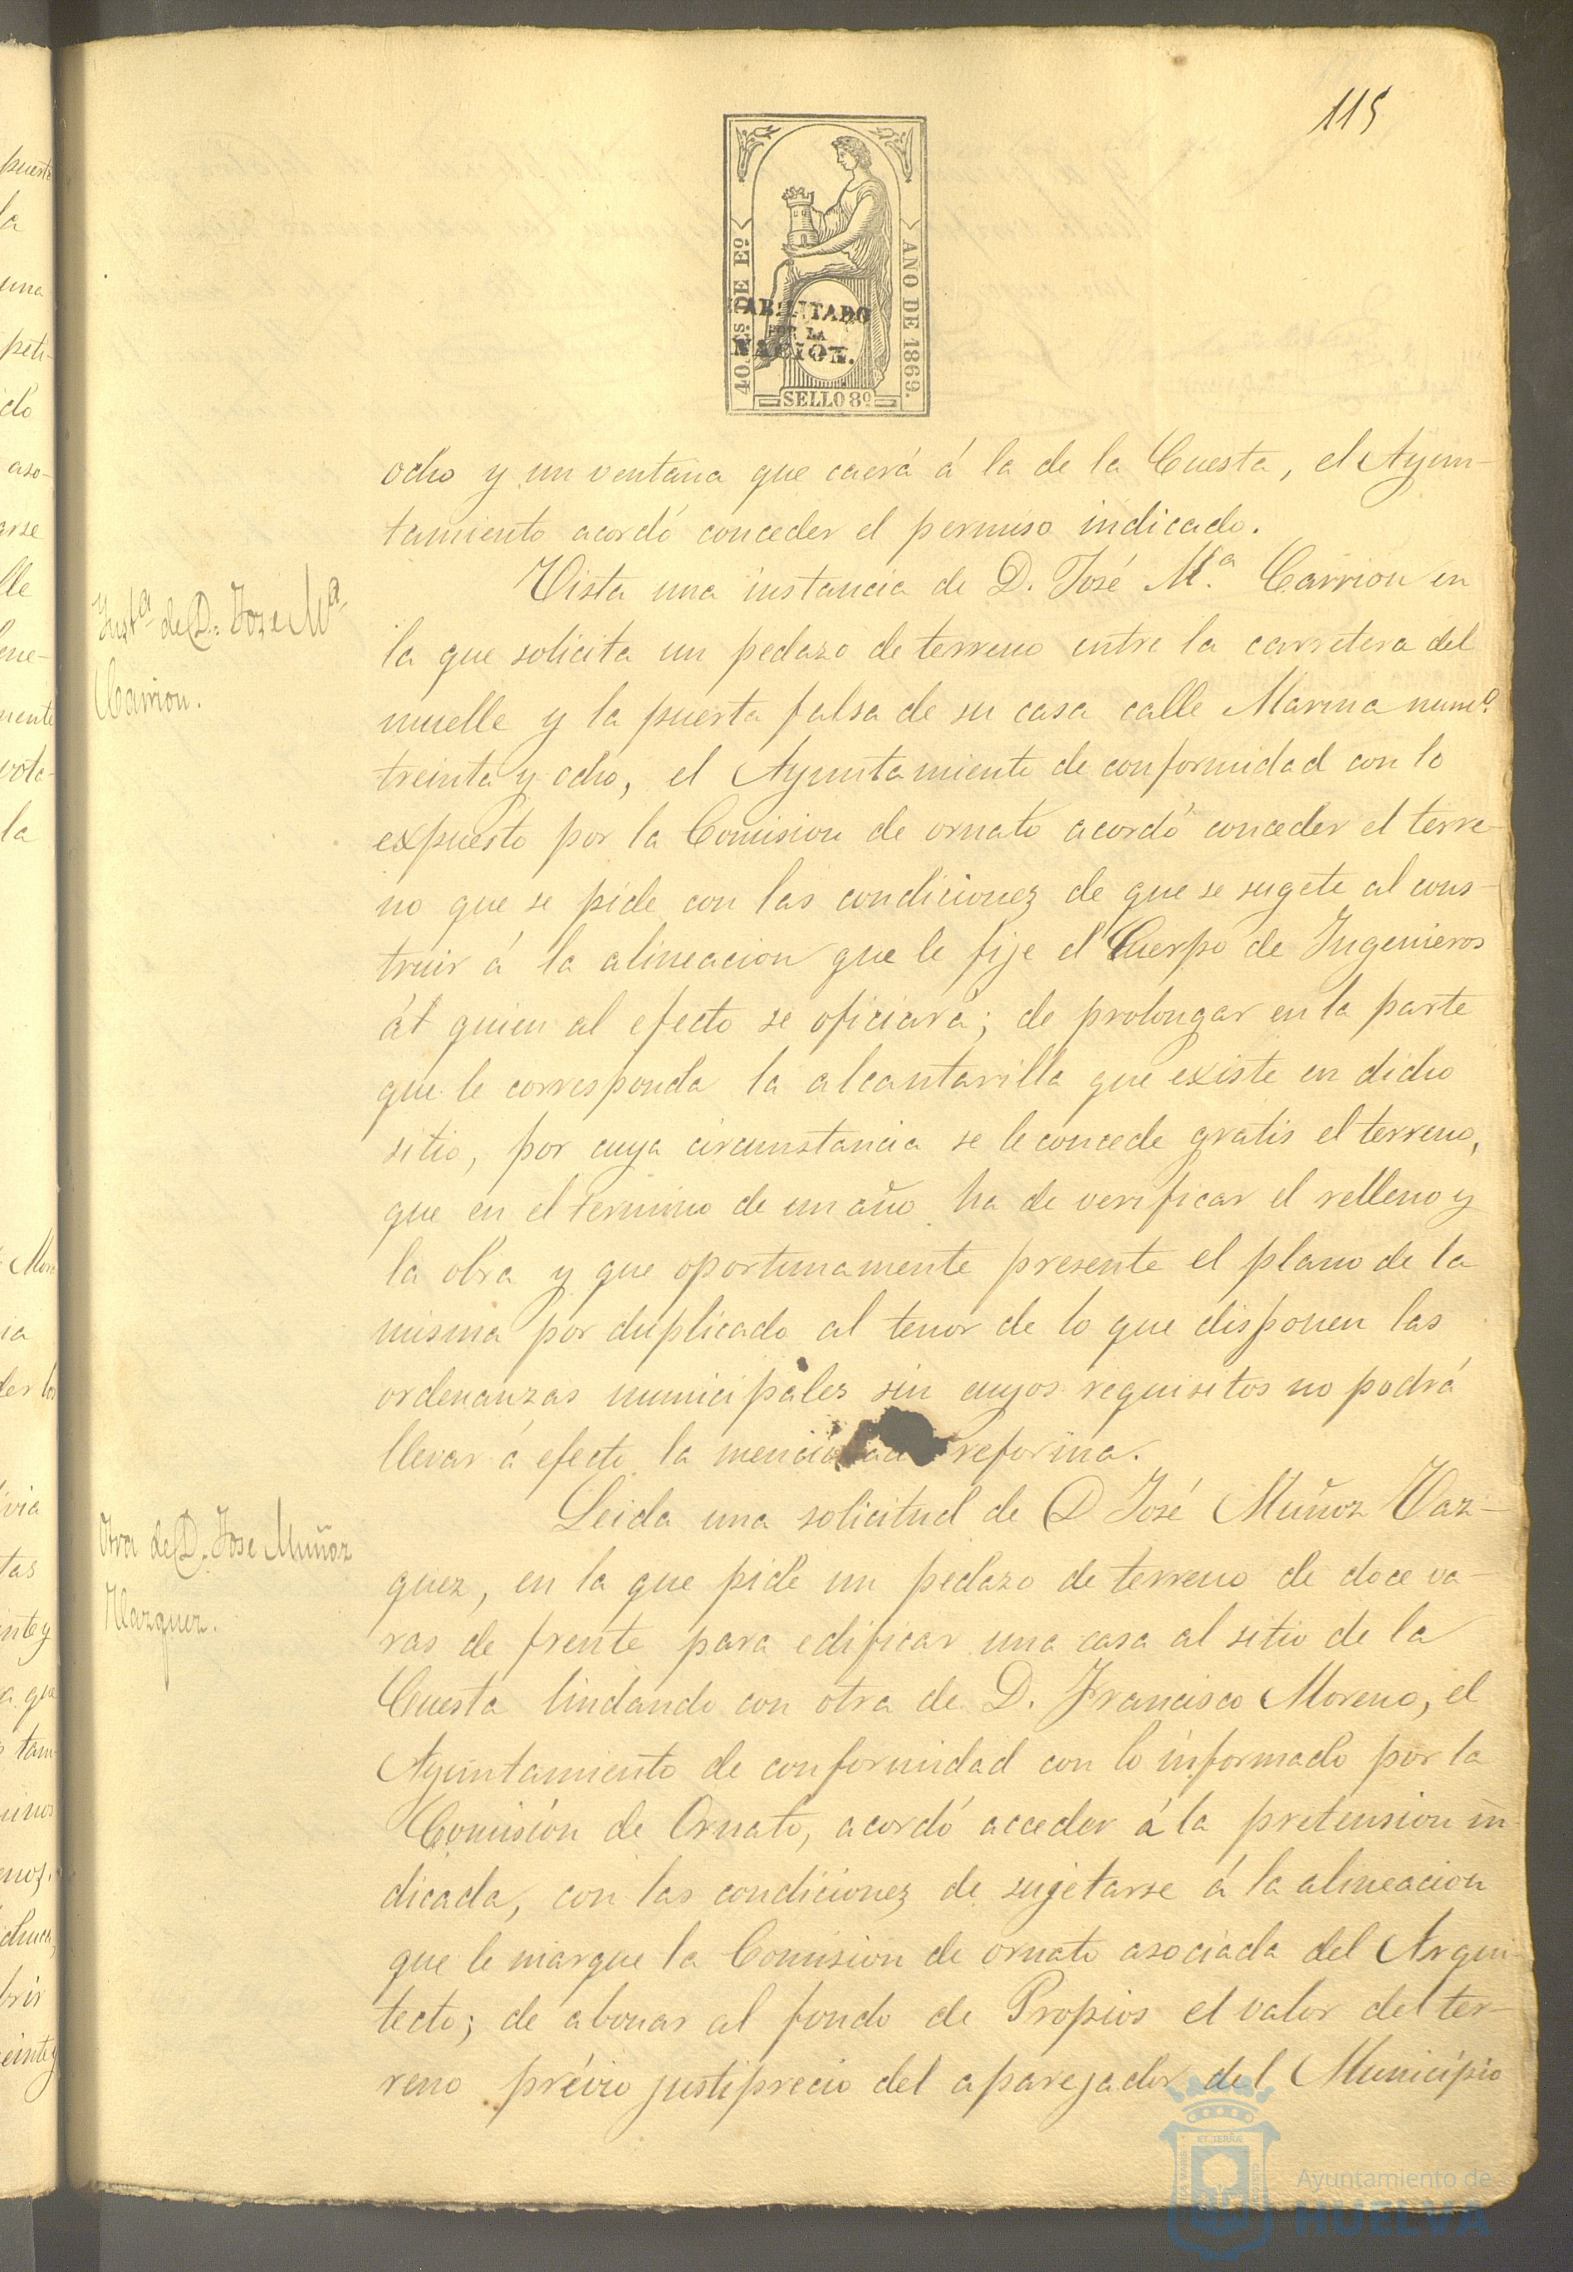 115
40 Es. DE Eº
AÑO DE 1869.
HABILITADO
POR LA
NACION.
SELLO 8º
ocho y un ventana que caerá á la de la Cuesta, el Ayun-
tamiento acordó conceder el permiso indicado.
Instª de D. Jose Mª
Carrion.
Vista una instancia de D. José M.ª Carrion en
la que solicita un pedazo de terreno entre la carretera del
muelle y la puerta falsa de su casa calle Marina numº
treinta y ocho, el Ayuntamiento de conformidad con lo
expuesto por la Comision de ornato acordó conceder el terre-
no que se pide con las condicionez de que se sugete al cons-
truir á la alineacion que le fije el Cuerpo de Ingenieros
á quien al efecto se oficiará; de prolongar en la parte
que le corresponda la alcantarilla que existe en dicho
sitio, por cuya circunstancia se le concede gratis el terreno,
que en el termino de un año ha de verificar el relleno y
la obra y que oportunamente presente el plano de la
misma por duplicado al tenor de lo que disponen las
ordenanzas municipales sin cuyos requisitos no podrá
llevar á efecto la mencionada reforma.
Otra de D. Jose Muñoz
Vazquez.
Leida una solicitud de D José Muñoz Vaz-
quez, en la que pide un pedazo de terreno de doce va-
ras de frente para edificar una casa al sitio de la
Cuesta lindando con otra de D. Francisco Moreno, el
Ayuntamiento de conformidad con lo informado por la
Comisión de Ornato, acordó acceder á la pretension in-
dicada, con las condicionez de sujetarse á la alineacion
que le marque la Comision de ornato asociada del Arqui-
tecto; de abonar al fondo de Propios el valor del ter-
reno prévio justiprecio del aparejador del Municipio
Ayuntamiento de
HUELVA